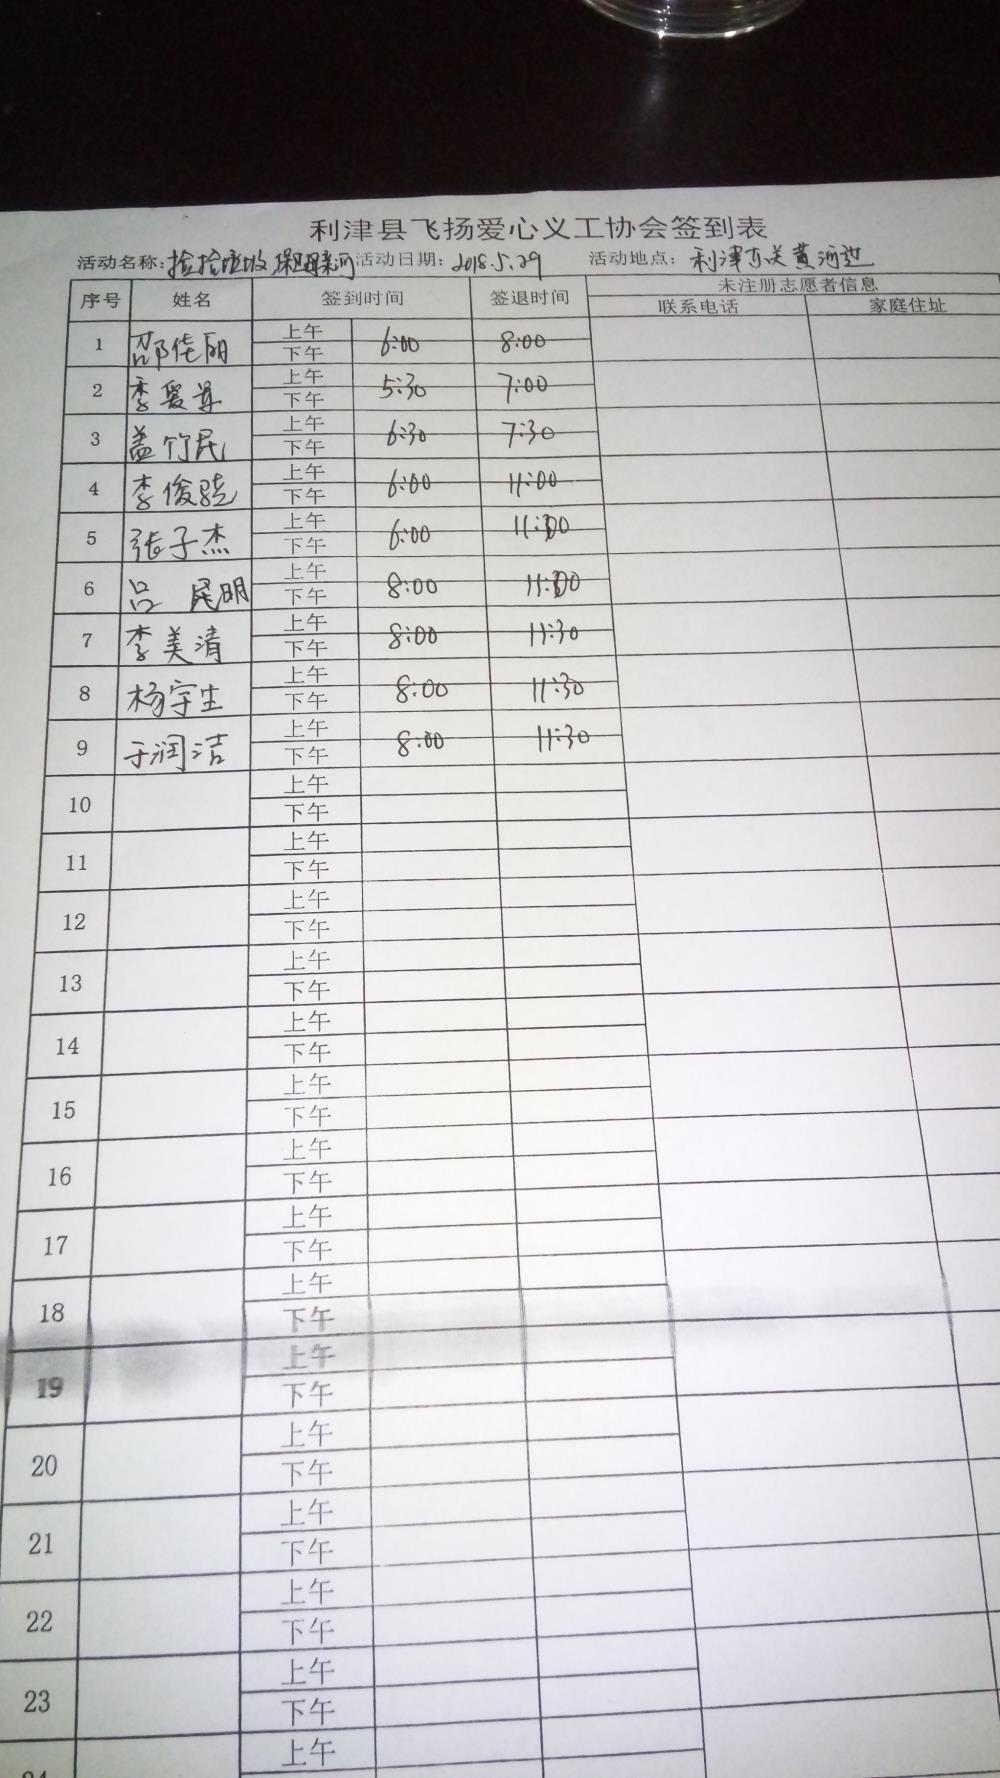 利津县飞扬爱心义工协会签到表
活动名称:捡捡垃圾 保护母亲河 活动日期: 2018.5.29 活动地点: 利津东关黄河边
序号 姓名 签到时间 签退时间 未注册志愿者信息
联系电话 家庭住址
1 邵佳丽 上午 下午 6:00 8:00
2 李爱尊 上午 下午 5:30 7:00
3 盖竹民 上午 下午 6:30 7:30
4 李俊晓 上午 下午 6:00 11:00
5 张子杰 上午 下午 6:00
6 吕 昆明 上午 下午 8:00
7 李美清 上午 下午 8:00 11:30
8 杨宇生 上午 下午 8:00 11:30
9 于润洁 上午 下午 8:00 11:30
10 上午 下午
11 上午 下午
12 上午 下午
13 上午 下午
14 上午 下午
15 上午 下午
16 上午 下午
17 上午 下午
18 上午 下午
19 上午 下午
20 上午 下午
21 上午 下午
22 上午 下午
23 上午 下午
上午